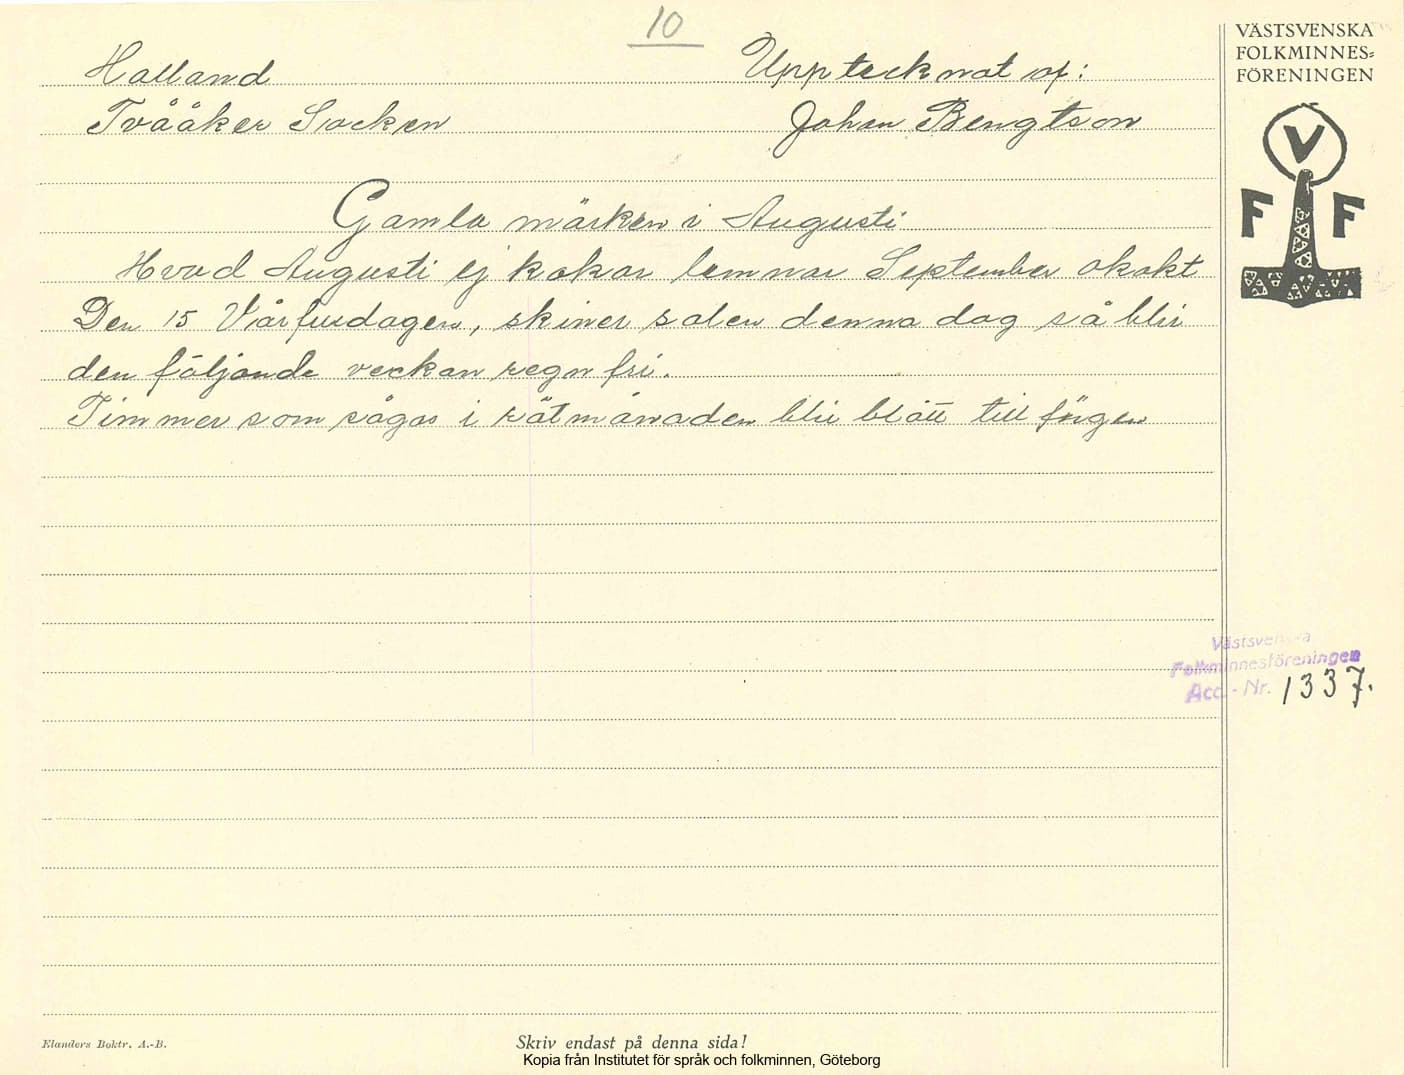 10
Halland
Upptecknat af:
Tvååker Socken
Johan Bengtson
Gamla märken i Augusti
Hvad Augusti ej kokar lemnar September okokt
Den 15 Vårfrudagen, skiner solen denna dag så blir
den följande veckan regn fri.
Timmer som sågas i rötmånaden blir blått till färgen
VÄSTSVENSKA
FOLKMINNES=
FÖRENINGEN
V
F F
Västsvenska
Folkminnesföreningen
Acc. - Nr. 1337.
Elanders Boktr. A.-B.
Skriv endast på denna sida!
Kopia från Institutet för språk och folkminnen, Göteborg